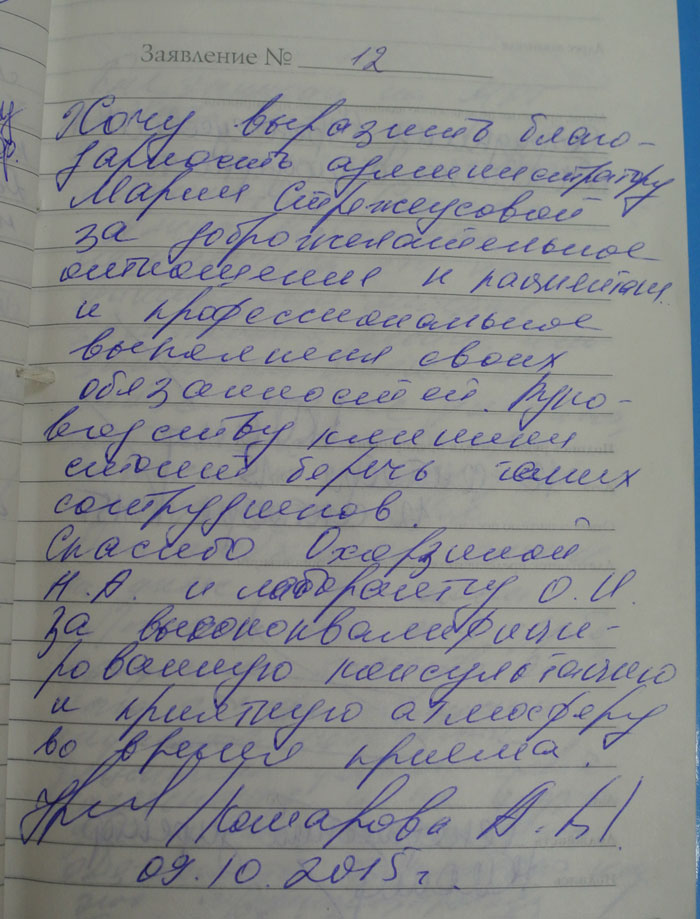 Заявление № 12
Хочу выразить благо-
дарность администратору
Марии
за доброжелательное
отношения к пациентам
и профессиональное
выполнения своих
обязанностей. Руко-
водству клиники
стоит беречь таких
сотрудников.
Спасибо Охорзиной
Н.А. и лаборанту О.И.
за высококвалифици-
рованную консультацию
и приятную атмосферу
во время приема.
/Комарова А.В/
09.10.2015г.